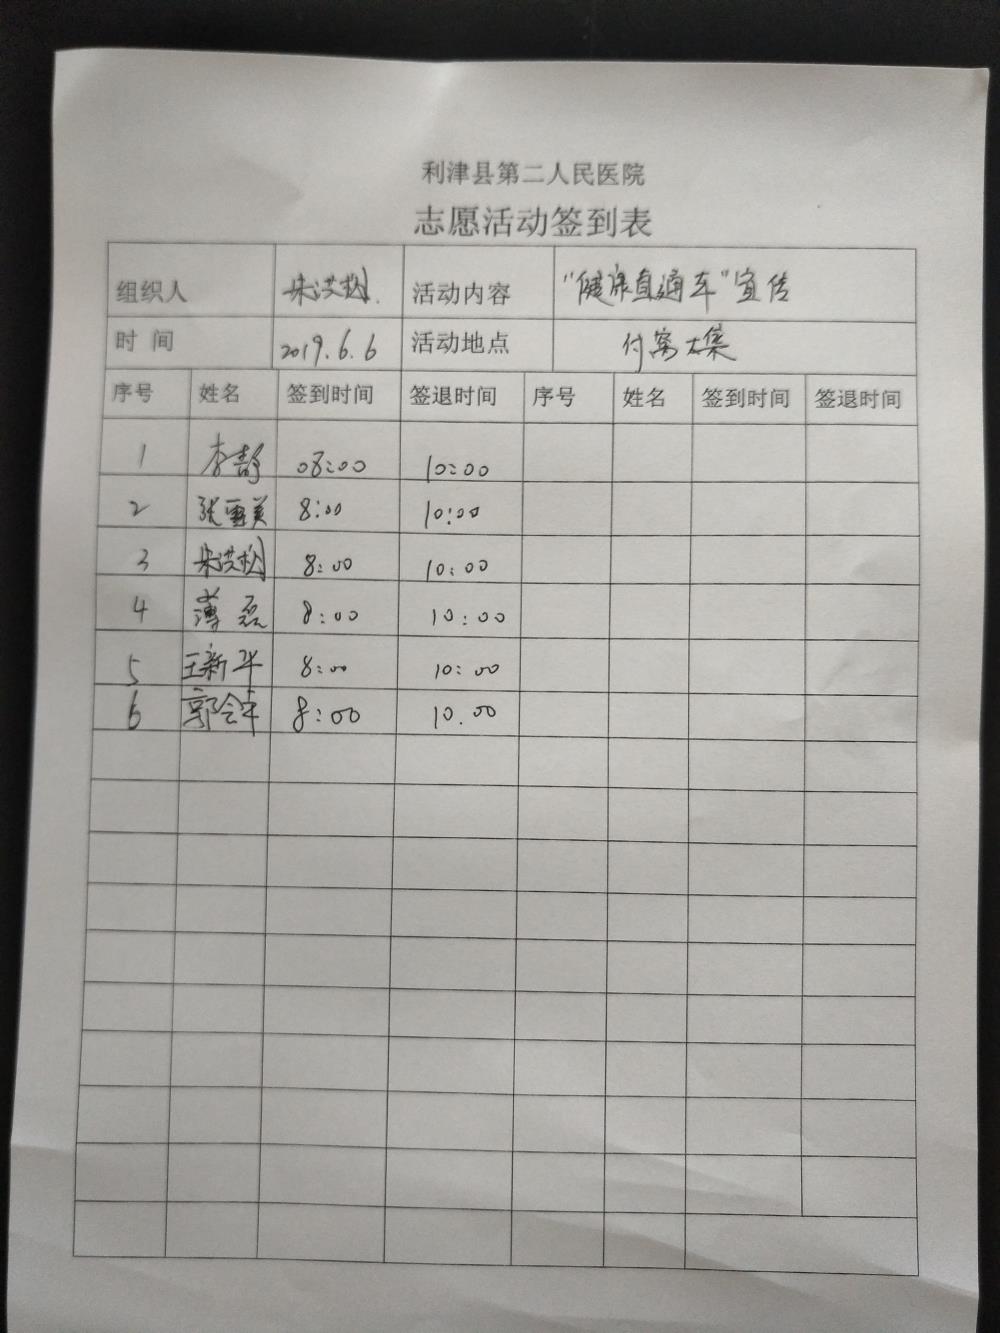 利津县第二人民医院
志愿活动签到表
组织人 宋洪松 活动内容 "健康直通车"宣传
时 间 2019.6.6 活动地点 付窝大集
序号 姓名 签到时间 签退时间 序号 姓名 签到时间 签退时间
1 李静 08:00 10:00
2 张雪美 8:00 10:00
3 宋洪松 8:00 10:00
4 薄磊 8:00 10:00
5 王新华 8:00 10:00
6 郭会军 8:00 10.00